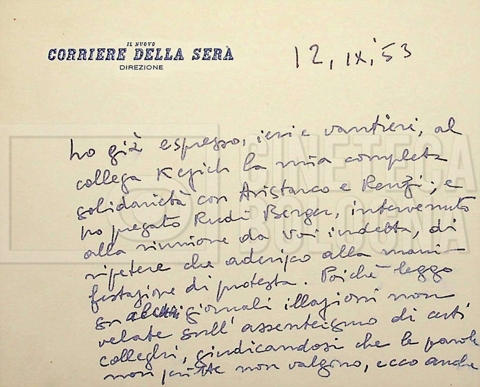 IL NUOVO
CORRIERE DELLA SERA
DIREZIONE
12, IX, 53
ho già espresso, ieri e vantieri, al
collega Kezich la mia completa
solidarietà con Aristarco e Renzi, e
ho pregato Rudi Berger, intervenuto
alla riunione da voi indetta, di
ripetere che aderisco alla mani-
festazione di protesta. Poiché leggo
su giornali illazioni non
velate sull'assenteismo di certi
colleghi, giudicandosi che le parole
non scritte non valgono, ecco anche
CINETECA
BOLOGNA